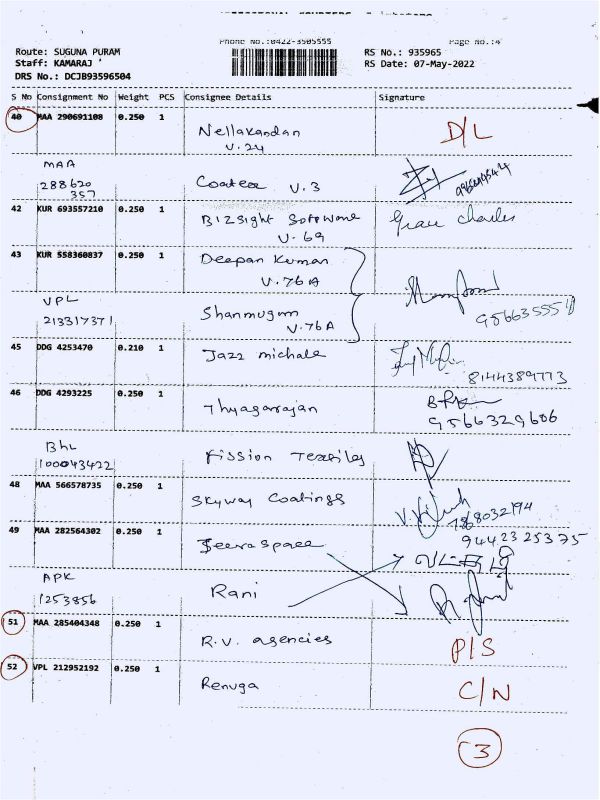 Phone No.:0422-3505555 Page No.:4
Route: SUGUNA PURAM RS No.: 935965
Staff: KAMARAJ RS Date: 07-May-2022
DRS No.: DCJB93596504
S No Consignment No Weight PCS Consignee Details Signature
40 MAA 290691108 0.250 1 Nellakandan D/L
V.24
MAA
288620 Coatex V.3
357
42 KUR 693557210 0.250 1 Bizsight Software Grace Charles
V.69
43 KUR 558360837 0.250 1 Deepan Kumar
V.76A
VPL Shanmugam
213317371 V.76A
45 DDG 4253470 0.210 1 Jazz michale
8144389773
46 DDG 4293225 0.250 1 Thyagarajan
9566329606
Bhl Fission Textiles
100043422
48 MAA 566578735 0.250 1 Skyway Coatings
49 MAA 282564302 0.250 1 9442325375
APK Rani
1253856
51 MAA 285404348 0.250 1 R.V. agencies P/S
52 VPL 212952192 0.250 1 Renuga C/N
3